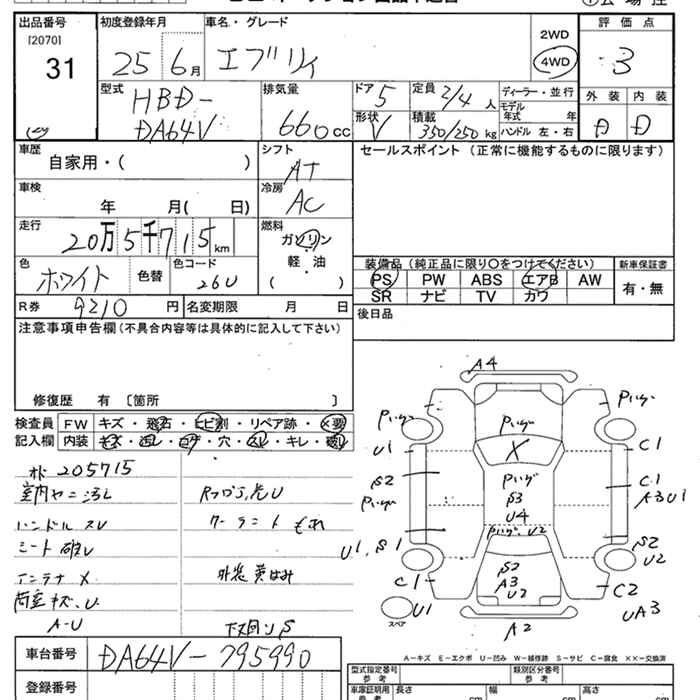 出品番号
[2070]
31
初度登録年月
25 6月
車名・グレード
エブリィ
2WD
4WD
評価点
3
外装 内装
D D
型式
HBD-
DA64V
排気量
660cc
ドア 5
形状 V
定員 2/4人
積載 350/250kg
ディーラー・並行
モデル年式 年
ハンドル 左・右
車歴
自家用・( )
シフト
AT
車検
年 月( 日)
冷房
AC
走行
20万5千715km
燃料
ガソリン
軽・油
( )
色
ホワイト
色替
色コード
26U
R券 9210円
名変期限 月 日
セールスポイント (正常に機能するものに限ります)
装備品 (純正品に限り○をつけてください)
PS PW ABS エアB AW
SR ナビ TV カワ
新車保証書
有・無
後日品
注意事項申告欄(不具合内容等は具体的に記入して下さい)
修復歴 有 〔箇所 〕
検査員記入欄
FW キズ・飛石・ヒビ割・リペア跡・X要
内装 キズ・汚レ・コゲ・穴・スレ・キレ・破レ
205715
ハンドル スレ
シート 破レ
アンテナ X
A-U
クーラント もれ
外装 黄ばみ
A4
U1
S2
U1, S1
C1
U1
スペア
X
S3
U4
U2
S2
A3
U2
A2
C1
C1
A3 U1
S2
U2
C2
UA3
A-キズ E-エクボ U-凹み W-補修跡 S-サビ C-腐食 XX-交換済
車台番号 DA64V-795990
登録番号
型式指定番号
参考
類別区分番号
参考
車庫証明用
参考
長さ cm
幅 cm
高さ cm